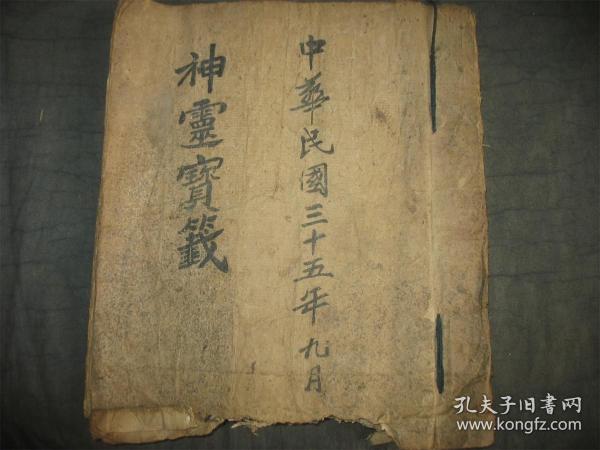 中華民國三十五年九月
神靈寶籤
孔夫子旧书网
www.kongfz.com